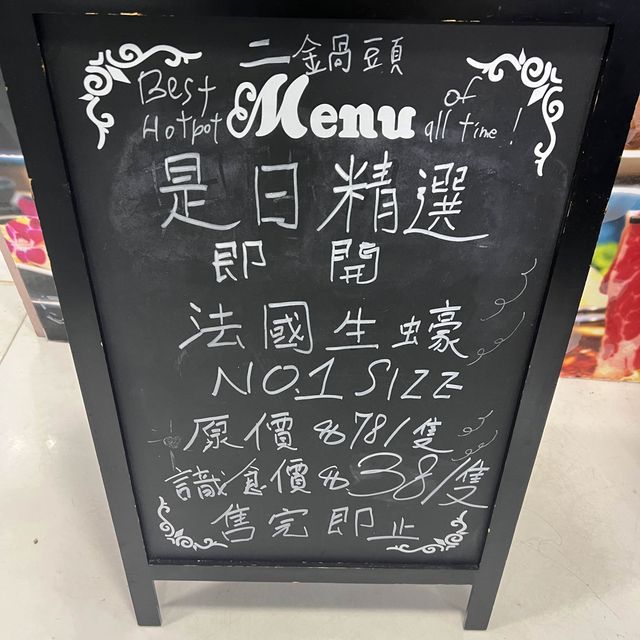 二鍋頭
Best Hotpot Menu of all time!
是日精選
即開
法國生蠔
NO.1 SIZZ
原價$78/隻
識食價$38/隻
售完即止